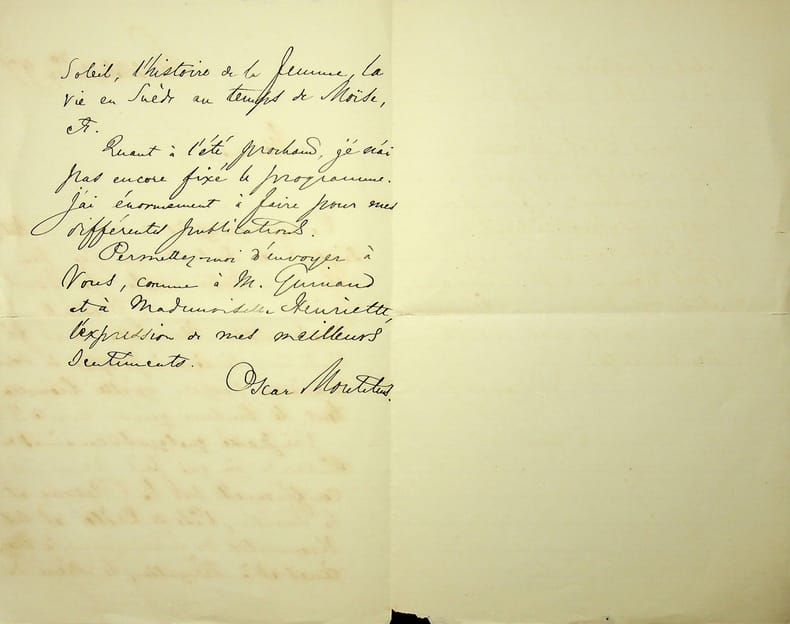 Soleil, l'histoire de la femme, la
vie en Suède au temps de Moïse,
etc.
Quant à l'été prochain, je n'ai
pas encore fixé le programme.
J'ai énormement à faire pour mes
différentes publications.
Permettez-moi d'envoyer à
Vous, comme à M. Guimaud
et à Mademoiselle Henriette,
l'expression de mes meilleurs
sentiments.
Oscar Montelius.